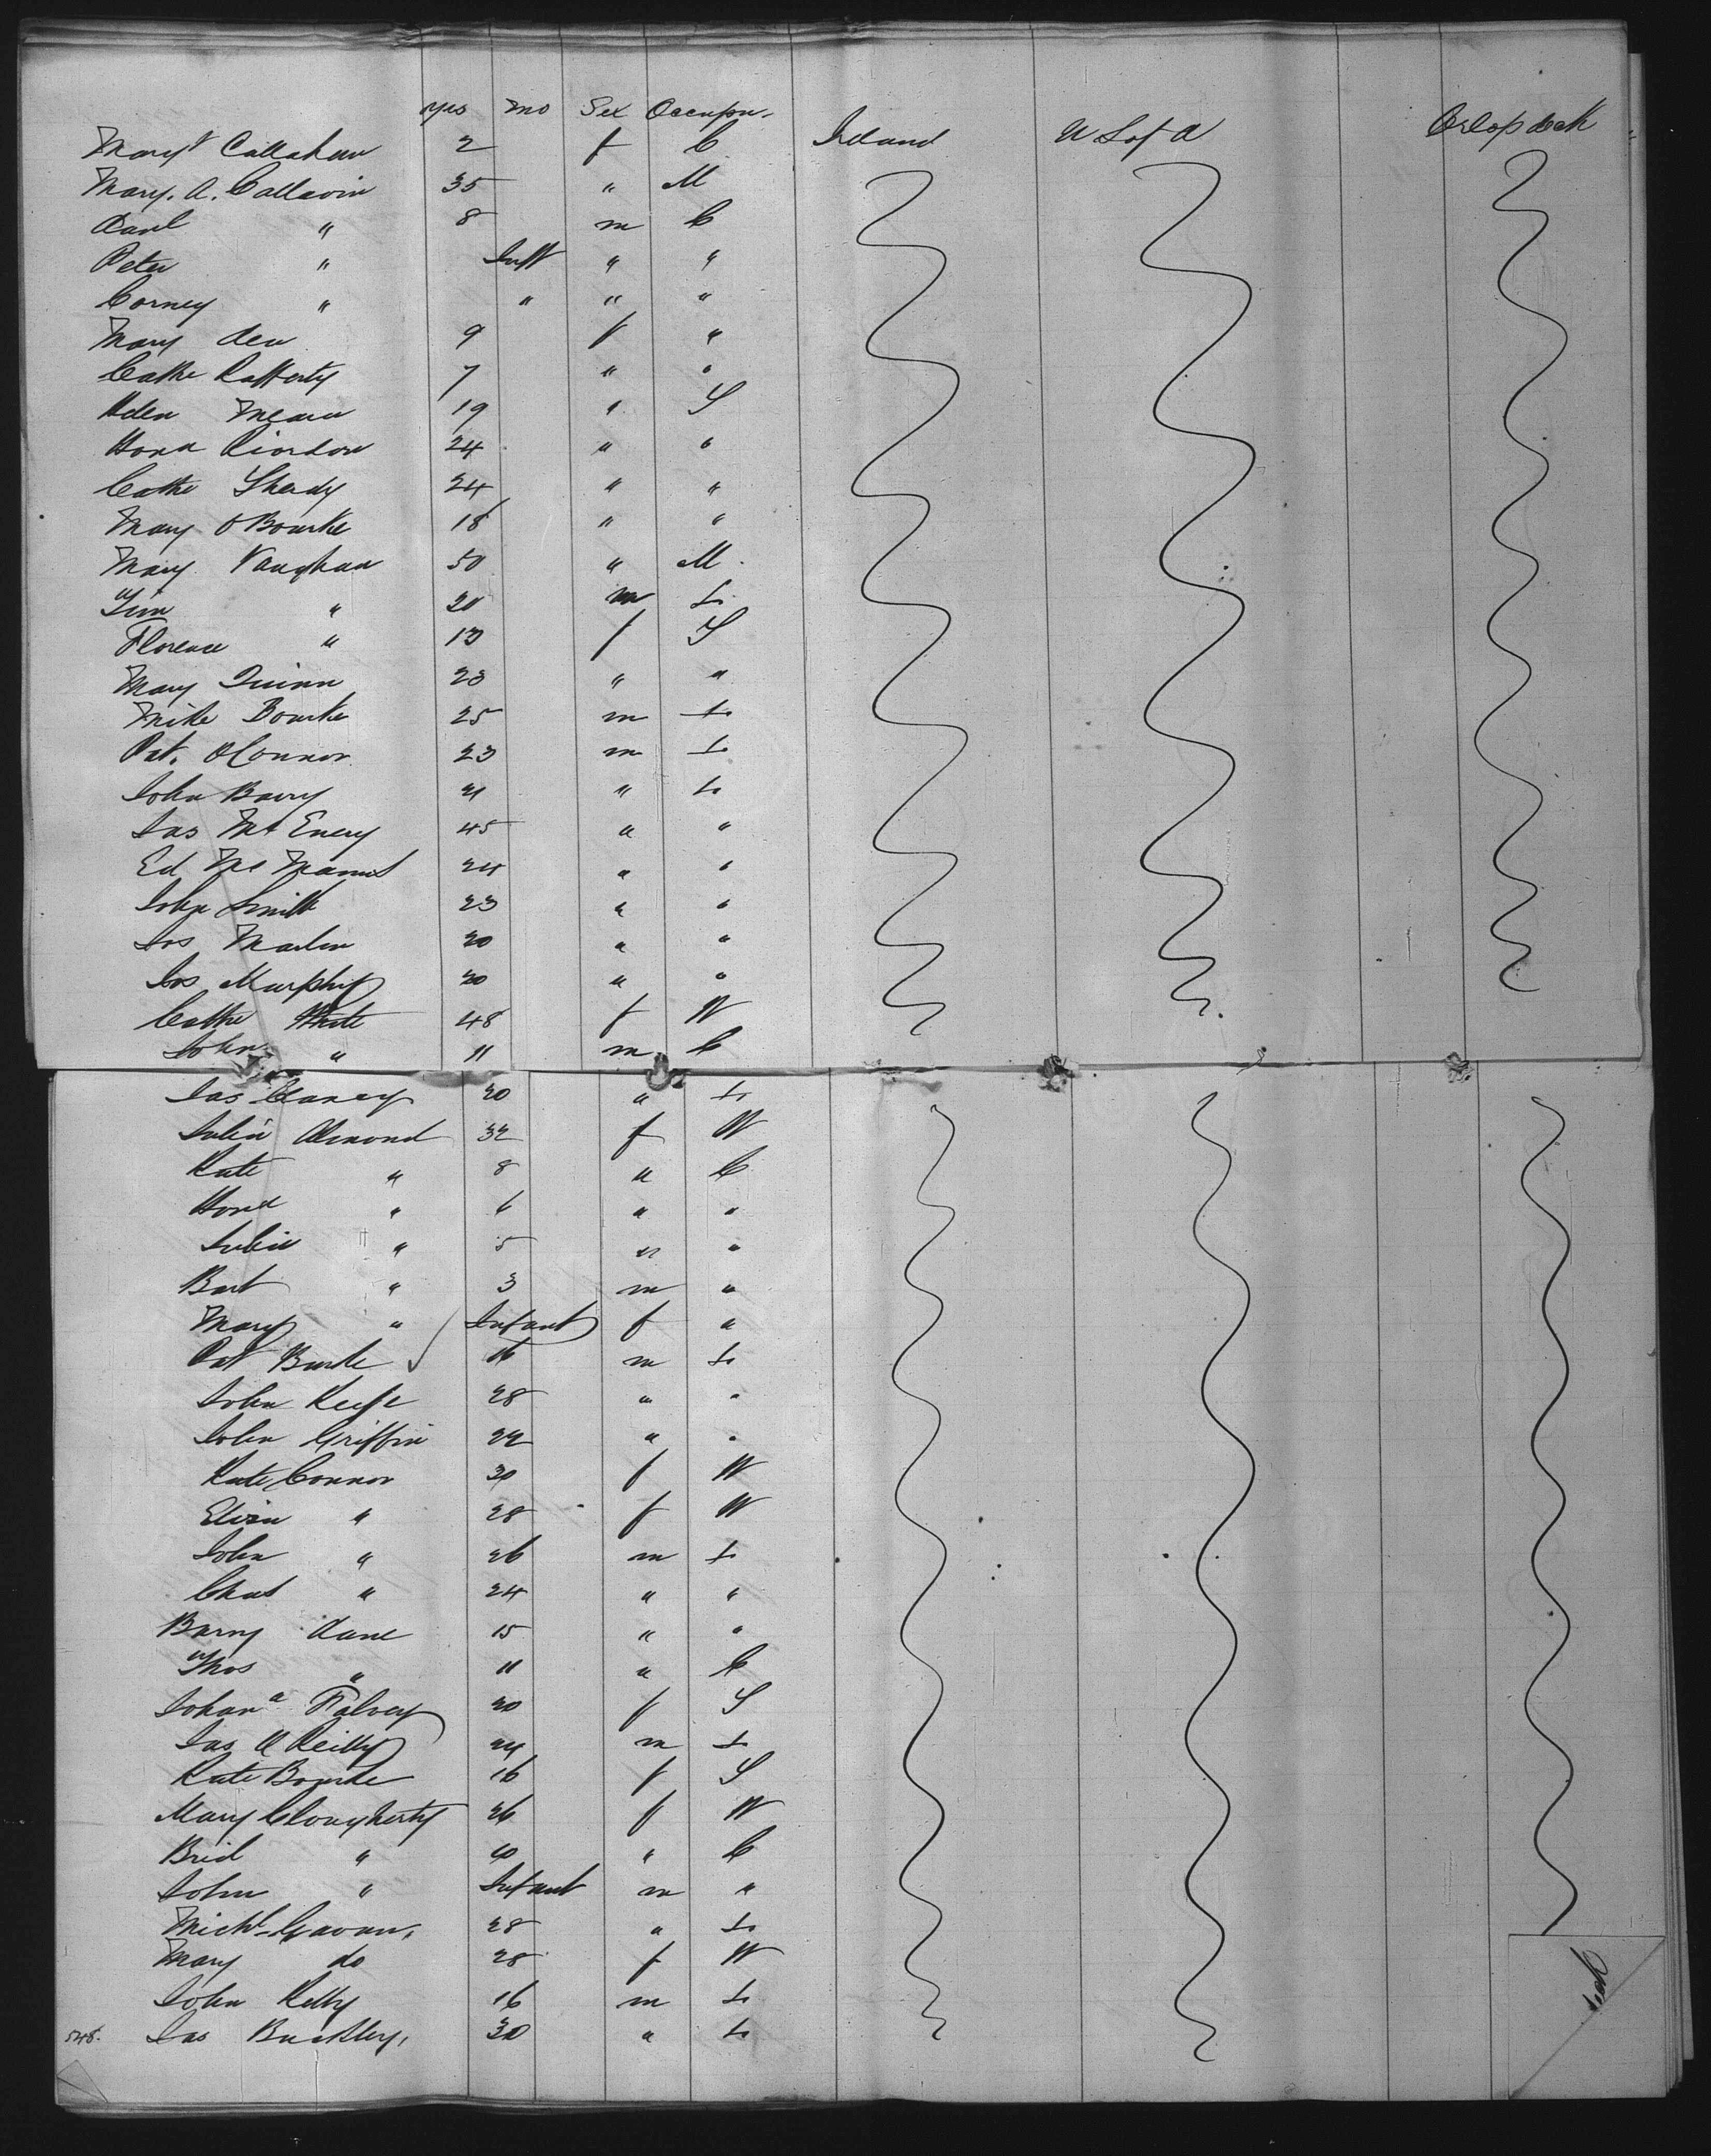 yrs mo Sex Occupn.
Mary Callahan 2 f C Ireland U S of A Orlop deck
Mary. A. Callavin 35 " M
Danl " 8 m C
Peter " Inft " "
Corney " " " "
Mary 9 f "
Cathe Rafferty 7 " "
19 " S
Hona Riordon 24 " "
Cathe Shady 24 " "
Mary O Bourke 18 " "
Mary Vaughan 50 " M
Tim " 20 m L
Florence " 13 f S
Mary Quinn 23 " "
Mike Bourke 25 m L
Pat. O Connor 23 m L
John Barry 21 " L
Jas Mc Enery 45 " "
Ed Mc Manus 24 " "
John Smith 23 " "
Jos 20 " "
Jos Murphy 20 " "
Cathe White 48 f W
John " 11 m C
Jas Clancy 20 " L
Julia Almond 32 f W
Kate " 8 " C
Hona " 6 " "
Julia " 5 " "
Bart " 3 m "
Mary " Infant f "
Pat Burke 16 m L
John Keefe 28 " "
John Griffin 22 " "
Kate Connor 30 f W
Eliza " 28 f W
John " 26 m L
Chas " 24 " "
Barny Kane 15 " "
Thos " 11 " C
Johana Falvey 20 f S
Jas O Reilly 24 m L
Kate Bourke 16 f S
Mary Clougherty 26 f W
Brid " " C
John " Infant m "
Michl Gavan, 28 " L
Mary do 28 f W
John Kelly 16 m L
548. Jas Buckley, 30 " L